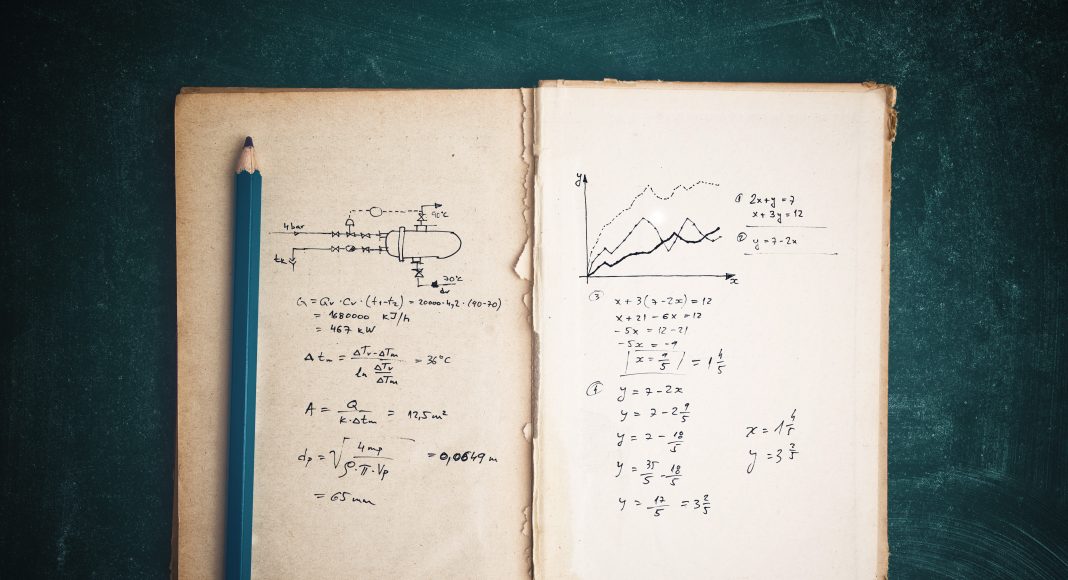 4 bar
90°C
tk
70°C
Q = Qv · Cv · (t1-t2) = 20000·4,2·(90-70)
= 1680000 KJ/h
= 467 kW
Δtm = ΔTv-ΔTm / ln ΔTv/ΔTm = 36°C
A = Q / K·Δtm = 12,5 m²
dp = √ 4mp / ρ·π·Vp = 0,0649 m
= 65 mm
y
x
① 2x+y = 7
x + 3y = 12
② y = 7-2x
③ x + 3(7-2x) = 12
x + 21 - 6x = 12
-5x = 12-21
-5x = -9
x = 9/5 = 1 4/5
④ y = 7-2x
y = 7-2 9/5
y = 7 - 18/5
y = 35/5 - 18/5
y = 17/5 = 3 2/5
x = 1 4/5
y = 3 2/5